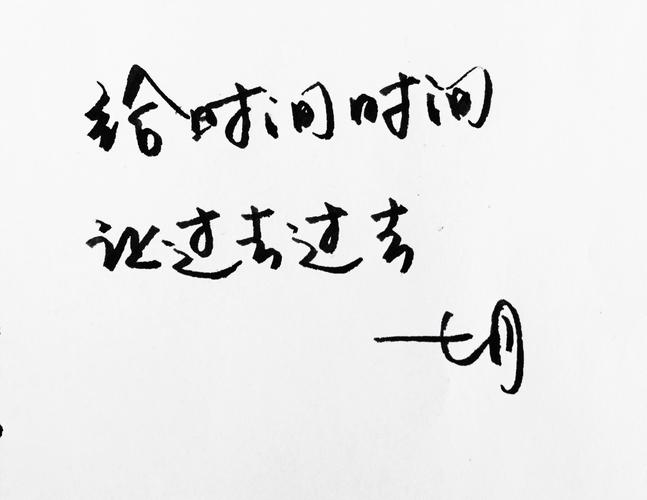 给时间时间
让过去过去
七月